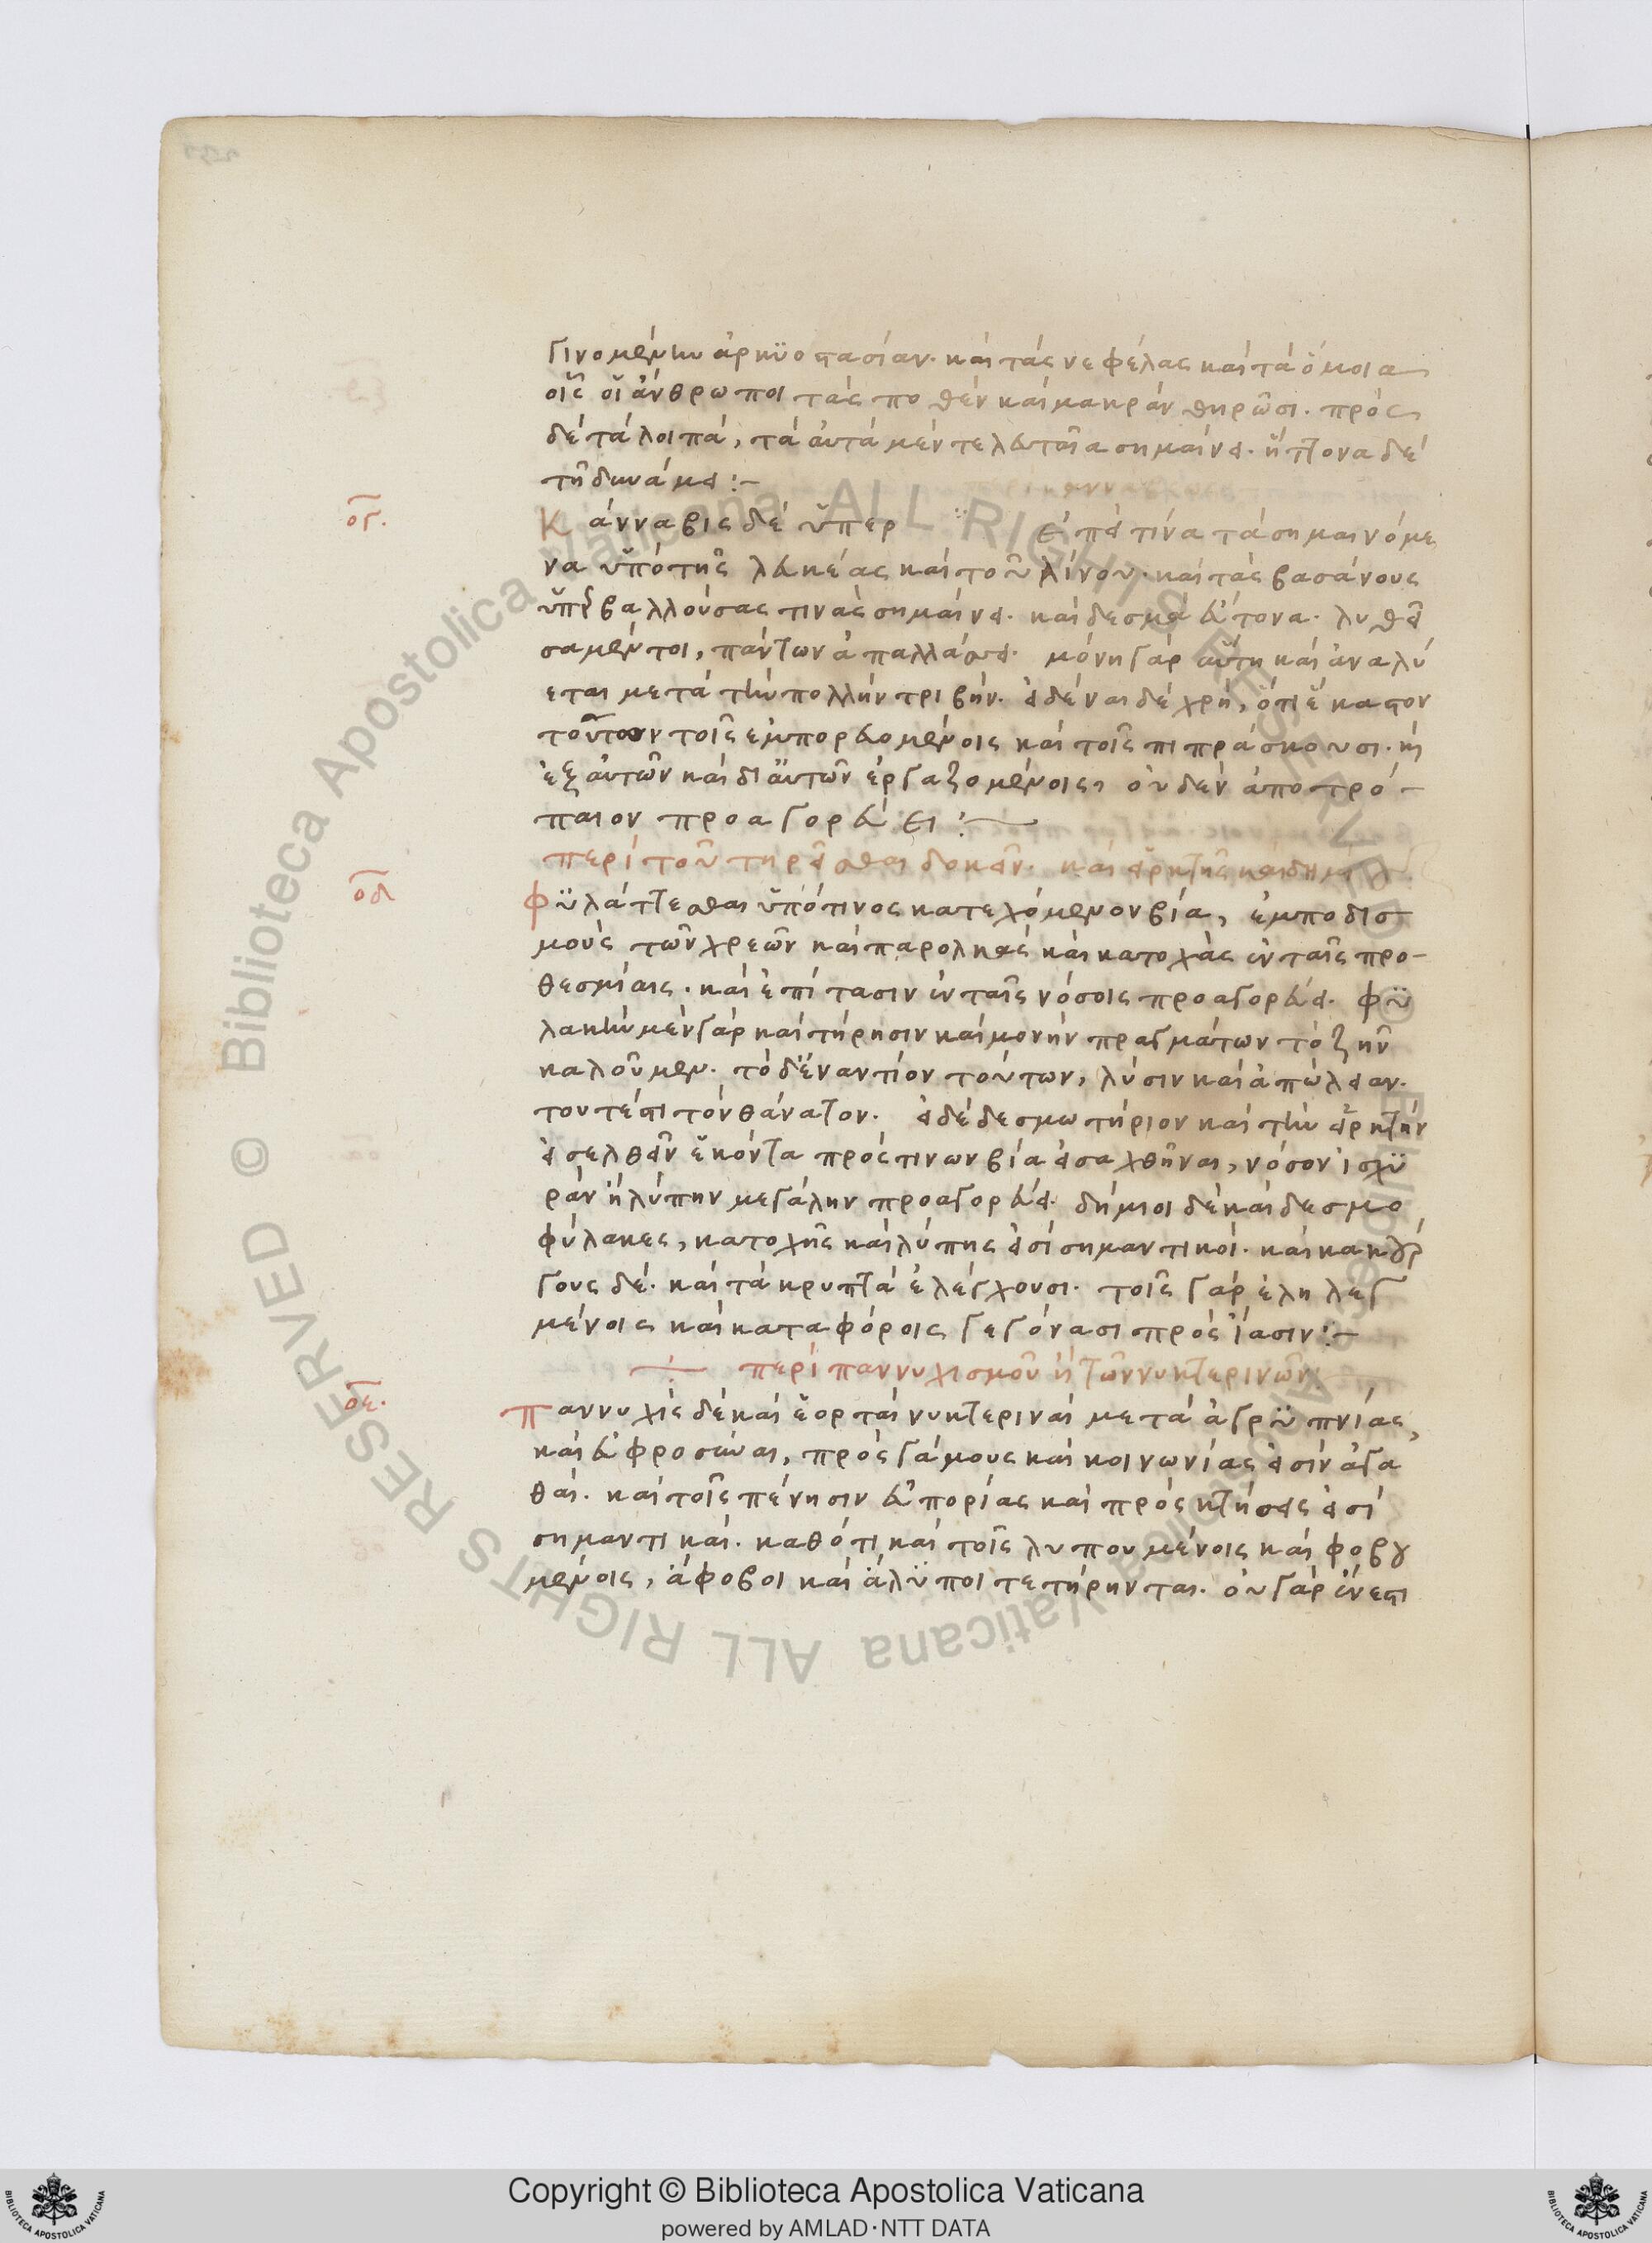 γινομένην ἀρκϋοστασίαν. καὶ τὰς νεφέλας καὶ τὰ ὅμοια
οἷς οἱ ἄνθρωποι τὰς ποθὲν καὶ μακρὰν θηρῶσι. πρὸς
δὲ τὰ λοιπὰ, τὰ αὐτὰ μὲν τελευταῖα σημαίνει. ἥττονα δὲ
τῆ δυνάμει :-
ογ.
Κάνναβις δὲ ὑπερ επειτινα τὰ σημαινόμε
να ὑπὸ τῆς λευκέας καὶ τοῦ λίνου. καὶ τὰς βασάνους
ὑπερβαλλούσας τινὰς σημαίνει. καὶ δεσμὰ εὔτονα. λυθεῖ
σα μέντοι, πάντων ἀπαλλάσσει. μόνη γὰρ αὕτη καὶ ἀναλύ
εται μετὰ τὴν πολλὴν τριβήν. εἰδέναι δὲ χρὴ, ὅτι ἕκαστον
τούτων τοῖς ἐμπορευομένοις καὶ τοῖς πιπράσκουσι. ἢ
ἐξ αὐτῶν καὶ δι αὐτῶν ἐργαζομένοις, οὐδὲν ἀποτρό-
παιον προαγορεύει :-
οδ
περὶ τοῦ τηρεῖσθαι δοκεῖν. καὶ εἱρκτῆς καὶ δημί
Φϋλάττεσθαι ὑπό τινος κατεχόμενον βία, ἐμποδισ
μοὺς τῶν χρεῶν καὶ παρολκὰς καὶ κατοχὰς ἐν ταῖς προ-
θεσμίαις. καὶ ἐπίτασιν ἐν ταῖς νόσοις προαγορεύει. φϋ
λακὴν μὲν γὰρ καὶ τήρησιν καὶ μονὴν πραγμάτων τὸ ζῆν
καλοῦμεν. τὸ δ' ἐναντίον τούτων, λύσιν καὶ ἀπώλειαν.
τουτέστι τὸν θάνατον. εἰ δὲ δεσμωτήριον καὶ τὴν εἱρκτὴν
εἰσελθεῖν ἑκόντα πρός τινων βία εἰσαχθῆναι, νόσον ἰσχϋ
ρὰν ἢ λύπην μεγάλην προαγορεύει. δήμιοι δὲ καὶ δεσμο
φύλακες, κατοχῆς καὶ λύπης εἰσὶ σημαντικοί. καὶ κακούρ
γους δέ. καὶ τὰ κρυπτὰ ἐλέγχουσι. τοῖς γὰρ ἐληλεγ
μένοις καὶ καταφόροις γεγόνασι πρὸς ἴασιν :-
οε.
περὶ παννυχισμοῦ ἢ τῶν νυκτερινῶν
Παννυχὶς δὲ καὶ ἑορταὶ νυκτεριναὶ μετὰ ἀγρϋπνίας,
καὶ εὐφροσύναι, πρὸς γάμους καὶ κοινωνίας εἰσὶν ἀγα
θαί. καὶ τοῖς πένησιν εὐπορίας καὶ πρὸς κτήσεις εἰσὶ
σημαντικαί. καθότι καὶ τοῖς λυπουμένοις καὶ φοβου
μένοις, ἄφοβοι καὶ ἄλϋποι τετήρηνται. οὐ γὰρ ἔνεστι
Copyright © Biblioteca Apostolica Vaticana
powered by AMLAD·NTT DATA